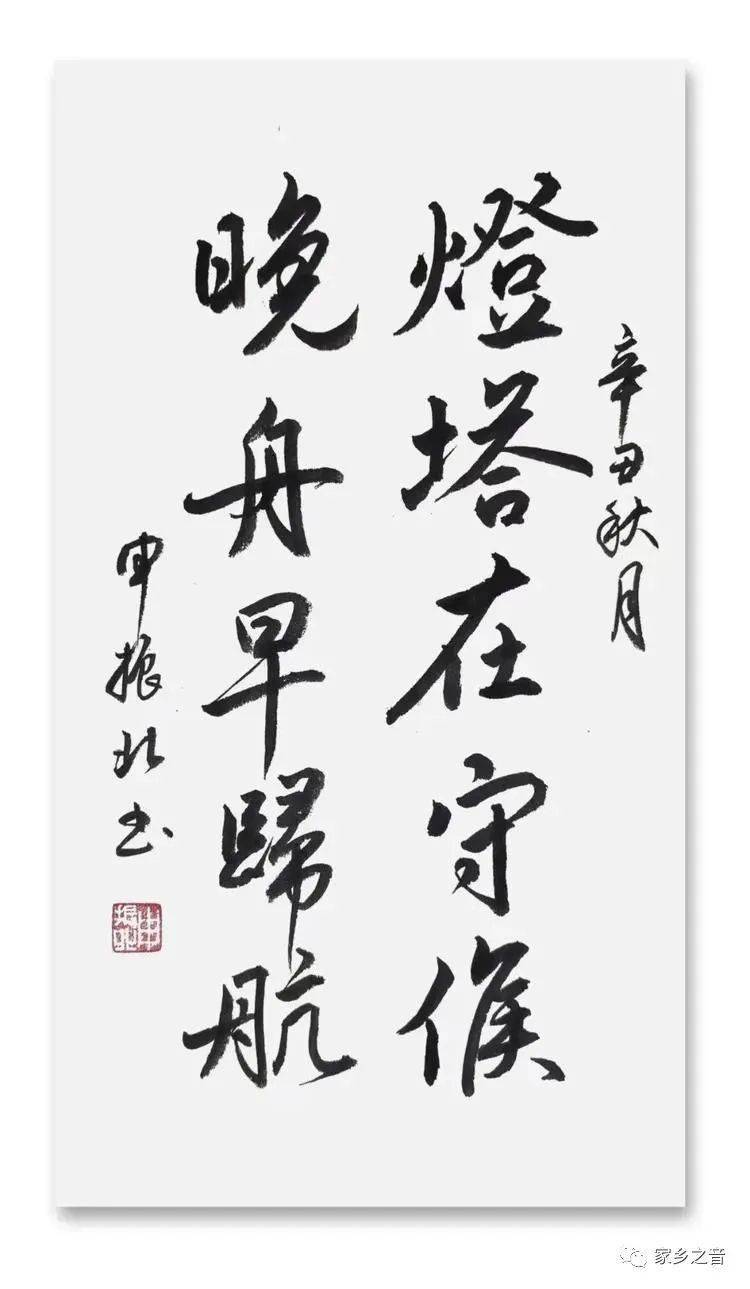 辛丑秋月
燈塔在守候
晚舟早歸航
申振北书
申振北
家乡之音